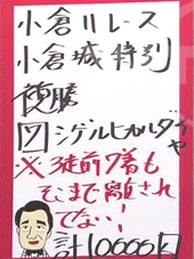 小倉11レース
小倉城特別
複勝
図シゲルヒカルダイヤ
※3徒前7着も
そこまで離され
てない!
計10000円